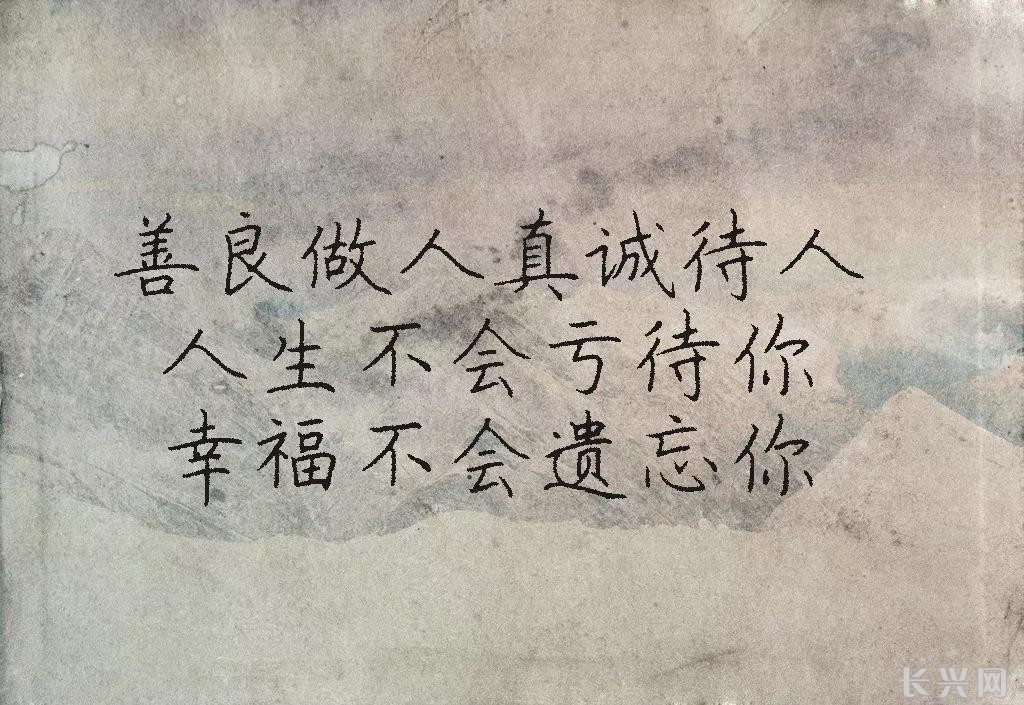 善良做人真诚待人
人生不会亏待你
幸福不会遗忘你
长兴网